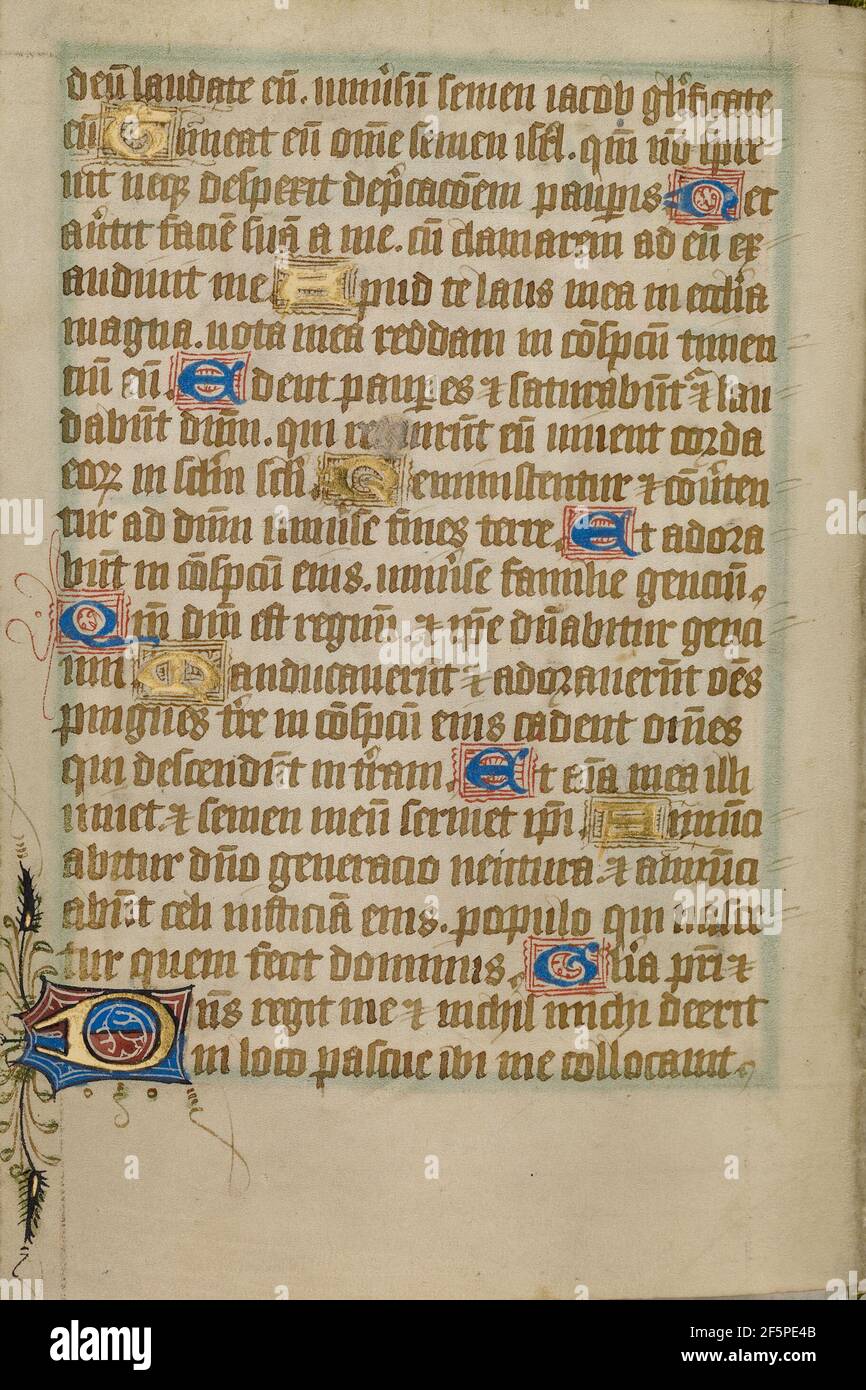 deū laudate eū. uniūsū semen iacob głificate
eū Timeat eū om̄e semen isrł. qm̄ nō spre
uit neqꝫ despexit dep̄cacōem paupis Nec
au̓tit faciē suā a me. cū clamarem ad eū ex
audiuit me Apud te laus mea in ecclīa
magna. uota mea reddam in cōspcū timen
ciū eū. Edent paupes ⁊ saturabūt̄ ⁊ lau
dabūt dūm. qui requirūt eū uiuent corda
eoꝝ in sclm̄ scłi. Reminiscentur ⁊ cōu̓ten
tur ad dūm uniūse fines terre. Et adora
būt in cōspcū eius. uniūse familie genciū.
Qm̄ dm̄ est regnū. ⁊ ip̄e dn̄abitur genci
um Manducauerūt ⁊ adorauerūt oēs
pingues t̓re in cōspcū eius cadent om̄es
qui descendūt in t̓ram. Et aīa mea illi
uiuet. ⁊ semen meū seruiet ip̄i. Annunci
abitur dn̄o generacio uentura. ⁊ annūci
abūt celi iusticiā eius. populo qui nasce
tur quem fecit dominus. Głia pr̄i ⁊
Dn̄s regit me ⁊ nichil michi deerit
in loco pascue ibi me collocauit.
alamy
2F5PE4B
www.alamy.com